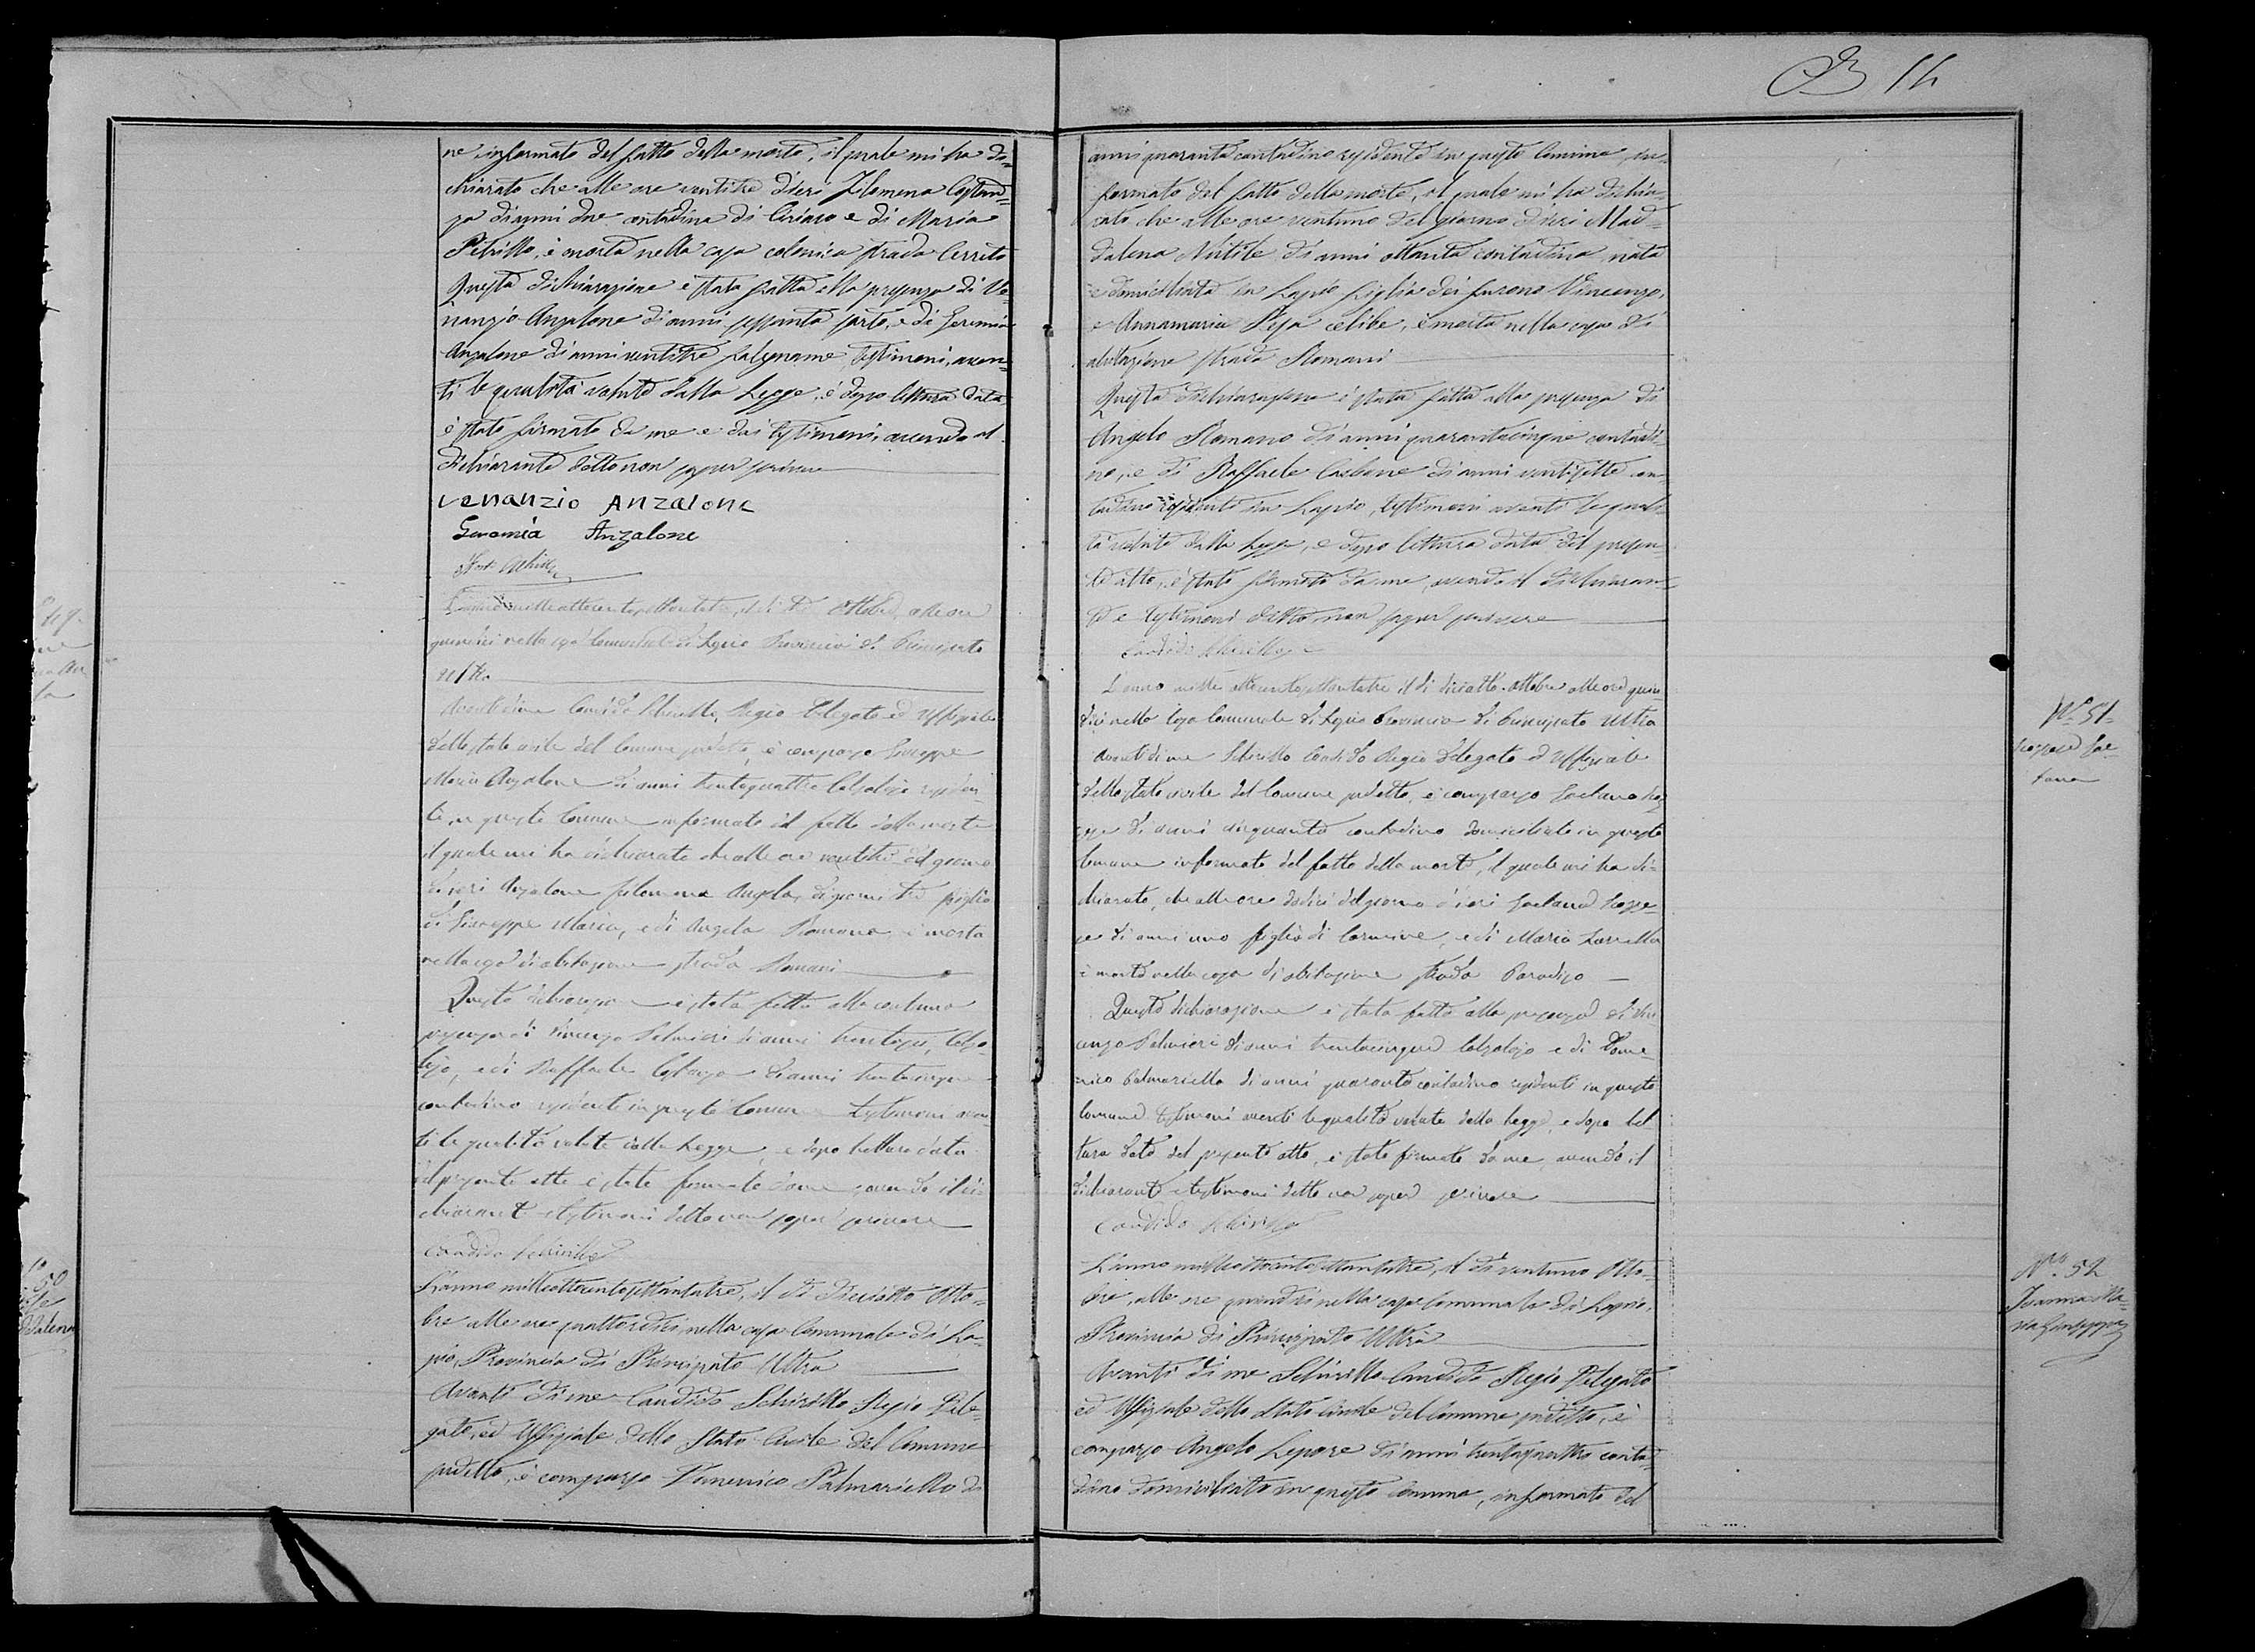 B 14
ne informato del fatto della morte, il quale mi ha di=
chiarato che alle ore ventitre d'ieri Filomena Costan=
za di anni due contadina di Ciriaco e di Maria
Petrillo, è morta nella casa colonica strada Cerreto
Questa dichiarazione è stata fatta alla presenza di Ve=
nanzio Anzalone di anni sessanta sarto, e di Geremia
Anzalone di anni ventitre falegname, testimoni, aven=
ti le qualità volute dalla Legge, e dopo lettura data
è stato firmato da me e dai testimoni, avendo il
dichiarante detto non saper scrivere
Venanzio Anzalone
Geremia Anzalone
49
L'anno milleottocentosettantatre, il dì Ottobre, alle ore
quindici nella casa Comunale di Lapio Provincia di Principato
Ultra
Avanti di me Candido Schirillo, Regio Delegato ed Uffiziale
dello stato civile del Comune predetto, è comparso Giuseppe
Maria Anzalone di anni trentaquattro Calzolajo residen=
te in questo Comune informato del fatto della morte
il quale mi ha dichiarato che alle ore ventitre del giorno
di ieri Anzalone Filomena Angela, di giorni tre figlia
di Giuseppe Maria, e di Angela Romano è morta
nella casa di abitazione strada Romani
Questa dichiarazione è stata fatta alla continua
presenza di Vincenzo Palmieri di anni trentasei, Calzo=
lajo, e di Raffaele Costanza di anni trentacinque
contadino residenti in questo Comune testimoni aven
ti le qualità volute dalla Legge, e dopo lettura data
del presente atto è stato firmato da me, avendo il di
chiarante e testimoni detto non saper scrivere
Candido Schirillo
No 50
dalena
L'anno milleottocentosettantatre, il dì Diciotto Otto=
bre alle ore quattordici, nella casa Comunale di La=
pio, Provincia di Principato Ultra
Avanti di me Candido Schirillo Regio Dele=
gato, ed Uffiziale dello Stato Civile del Comune
predetto, è comparso Domenico Palmariello di
anni quaranta contadino residente in questo Comune, in=
formato del fatto della morte, il quale mi ha dichia=
rato che alle ore ventuno del giorno d'ieri Mad=
dalena di anni ottanta contadina, nata
e domiciliata in Lapio figlia dei furono Vincenzo,
e Annamaria celibe, è morta nella casa di
abitazione strada Romani
Questa dichiarazione è stata fatta alla presenza di
Angelo Romano di anni quarantacinque contadi=
no, e di Raffaele di anni ventisette con=
tadino residenti in Lapio, testimoni aventi le quali=
tà volute dalla Legge, e dopo lettura data del presen=
te atto, è stato firmato da me, avendo il dichiaran=
te e testimoni detto non saper scrivere
Candido Schirillo
No 51
tana
L'anno mille ottocentosettantatre il dì diciotto Ottobre alle ore quin
dici nella Casa Comunale di Lapio Provincia di Principato Ultra
Avanti di me Schirillo Candido Regio Delegato ed Uffiziale
dello stato civile del Comune predetto, è comparso Gaetano
di anni cinquanta contadino domiciliato in questo
Comune informato del fatto della morte, il quale mi ha di=
chiarato, che alle ore dodici del giorno d'ieri Gaetana
di anni uno figlia di Carmine, e di Maria
è morta nella casa di abitazione strada Paradiso
Questa dichiarazione è stata fatta alla presenza di Vin
cenzo Palmieri di anni trentacinque Calzolajo e di Dome=
nico Palmariello di anni quaranta contadino residenti in questo
Comune testimoni aventi le qualità volute dalla Legge, e dopo let
tura data del presente atto, è stato firmato da me, avendo il
dichiarante e testimoni detto non saper scrivere
Candido Schirillo
No. 52
L'anno milleottocentosettantatre, il dì ventuno Otto=
bre, alle ore quindici nella casa Comunale di Lapio,
Provincia di Principato Ultra
Avanti di me Schirillo Candido Regio Delegato
ed Uffiziale dello Stato Civile del Comune predetto, è
comparso Angelo Lepore di anni trentaquattro conta=
dino domiciliato in questo Comune, informato del